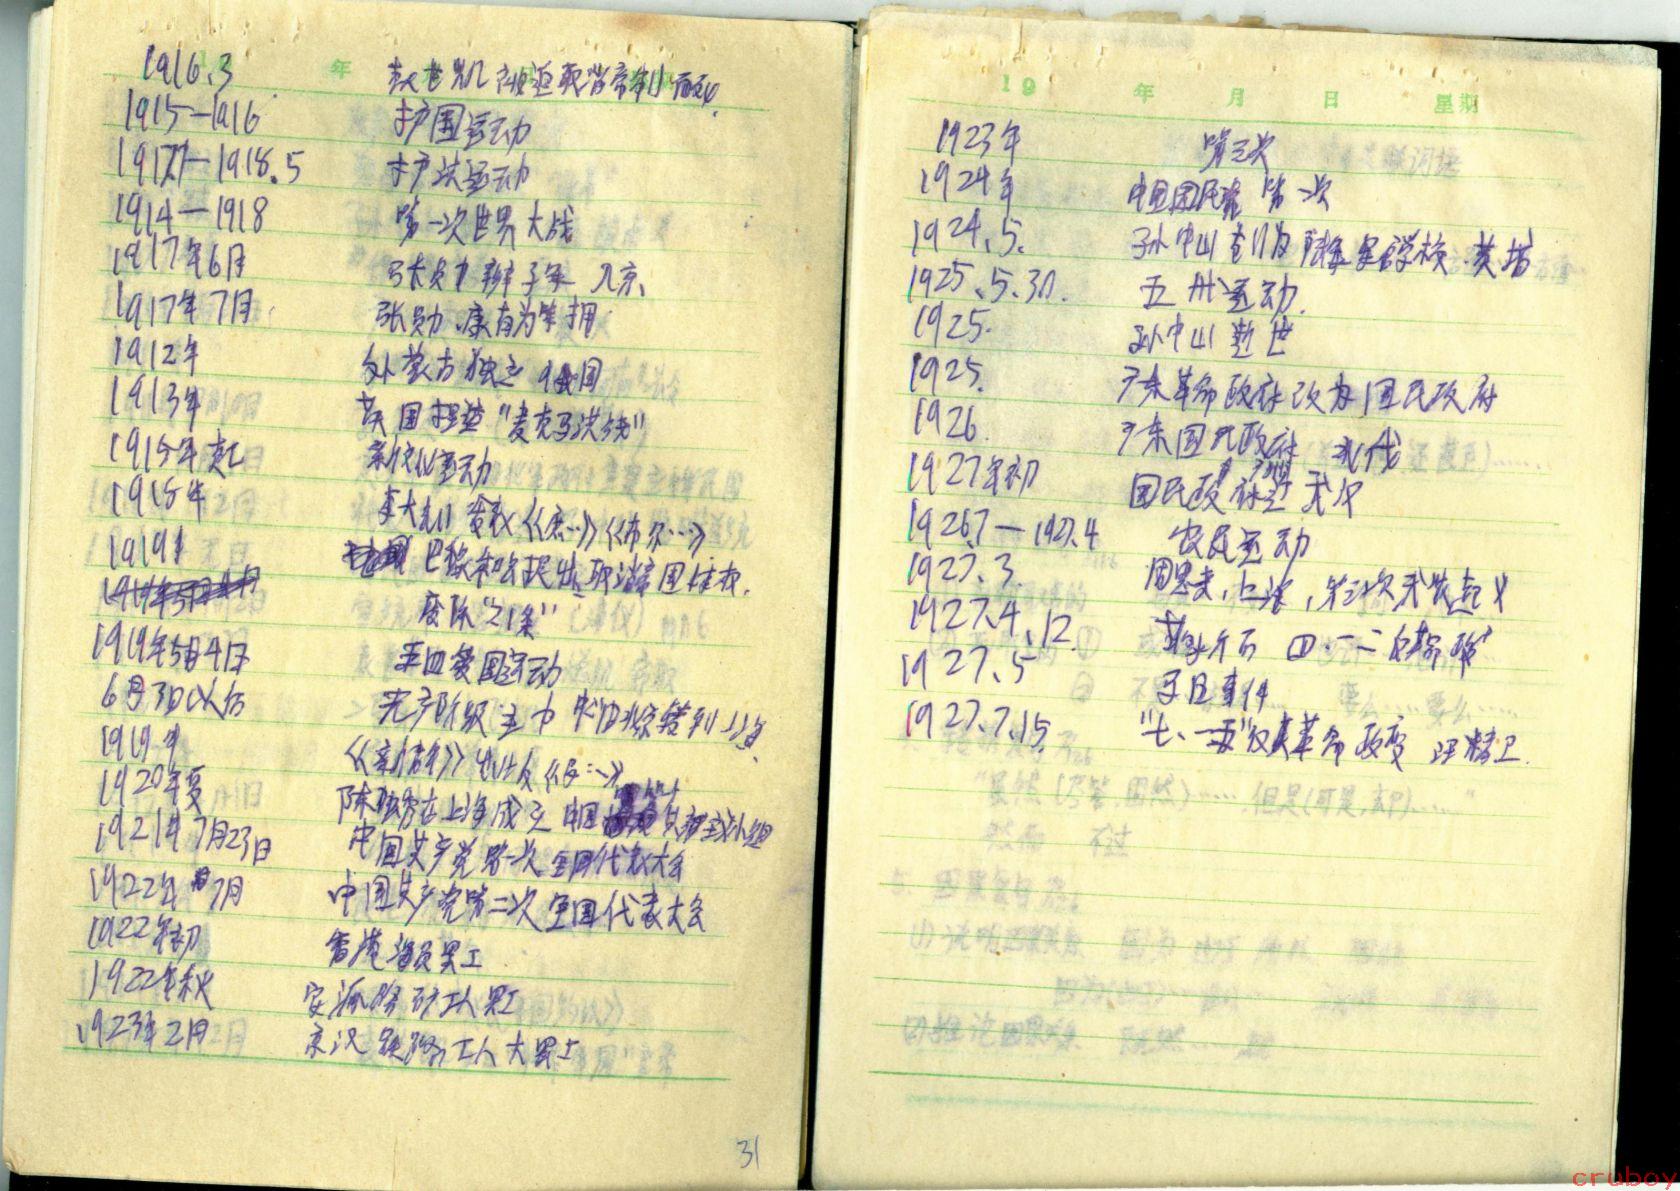 年
1916.3 袁世凯被迫取消帝制而死
1915—1916 护国运动
1917.7—1918.5 护法运动
1914—1918 第一次世界大战
1917年6月 张勋 辫子军 入京、
1917年7月 张勋、康有为等拥
1912年 外蒙古独立 国
1913年 英国 "麦克马洪线"
1915年 新文化运动
1918年 李大钊 发表《庶…》《布尔…》
1919 巴黎和会提出取消帝国 权.
废除"21条"
1919年5月4日 五四爱国运动
6月3日以后 无产阶级 主力 中心 北京转到上海
1919年
1920年夏 陈独秀在上海成立 中国 共产主义小组
1921年7月23日 中国共产党第一次全国代表大会
1922年7月 中国共产党第二次全国代表大会
1922年初 香港海员罢工
1922年秋 安源路矿工人罢工
1923年2月 京汉铁路工人大罢工
31
19 年 月 日 星期
1923年 第三次
1924年 中国国民党 第一次
1924.5. 孙中山 陆军军官学校.黄埔
1925.5.30. 五卅运动.
1925. 孙中山逝世
1925. 广东革命政府改为国民政府
1926. 广东国民政府 北伐
1927年初 国民政府 迁 武汉
1926.7—1927.4 农民运动
1927.3. 周恩来,上海,第三次武装起义
1927.4.12. 蒋介石 四·一二
1927.5 马日事件
1927.7.15. "七、一五"反革命政变 汪精卫.
cruboy